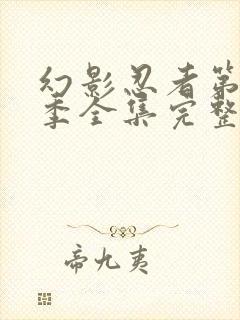 幻影忍者第
季全集完整
帝九夷